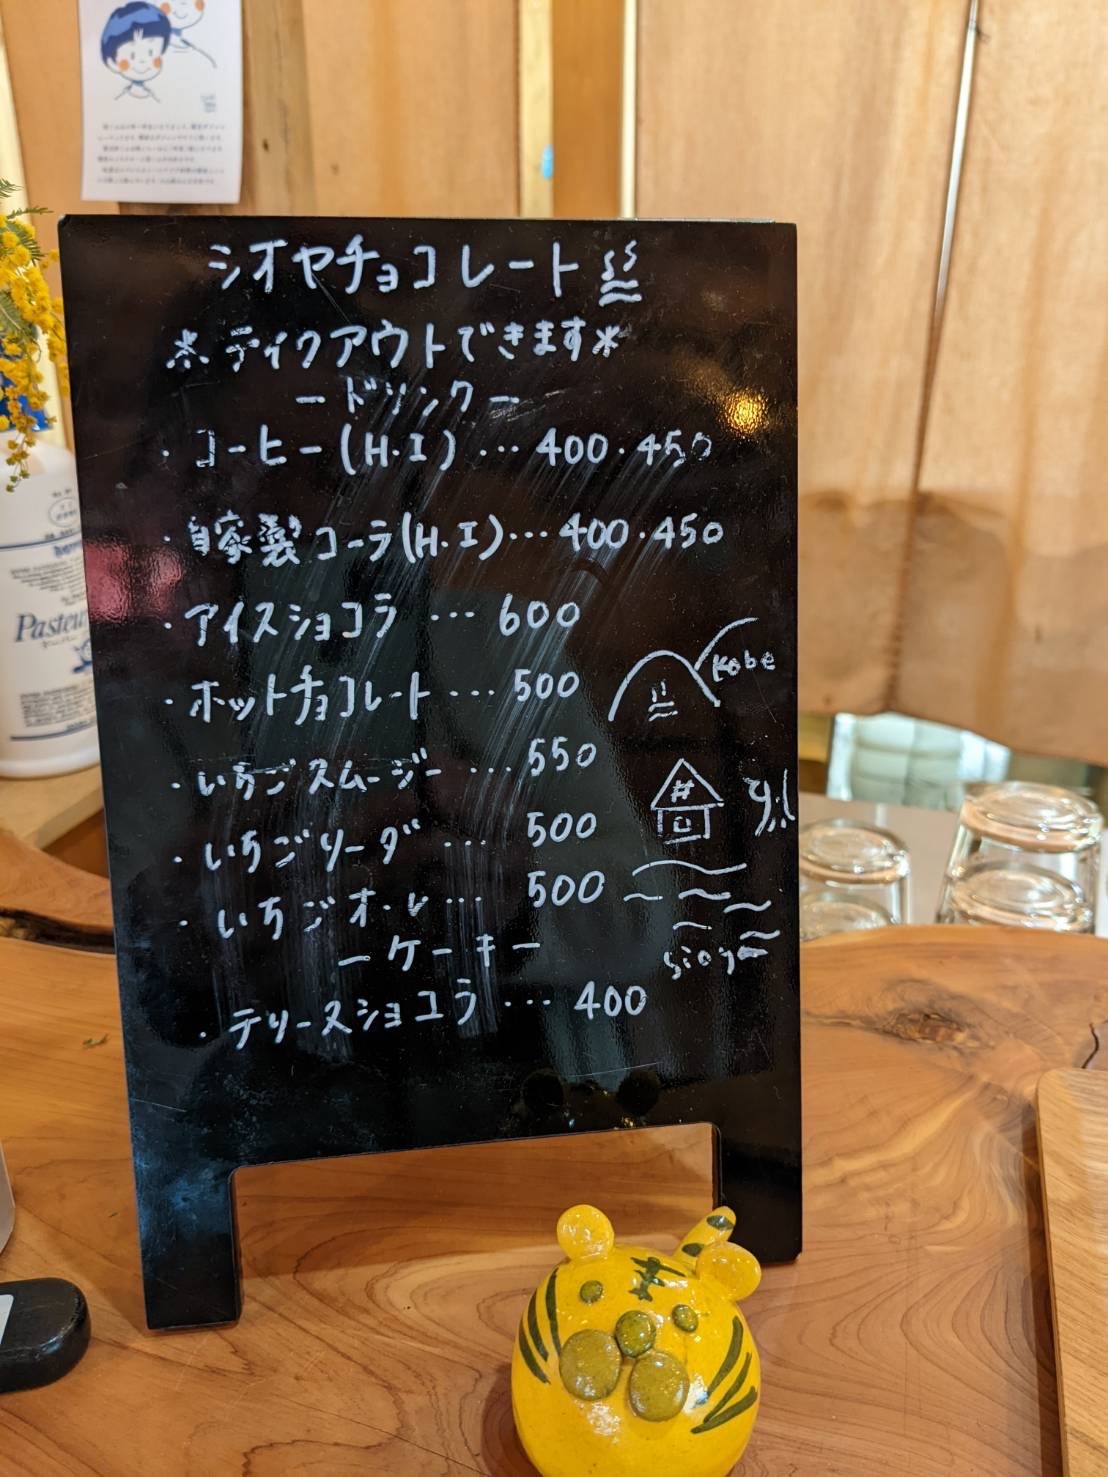 シオヤチョコレート
*テイクアウトできます*
ードリンクー
・コーヒー(H・I)…400・450
・自家製コーラ(H・I)…400・450
・アイスショコラ…600
・ホットチョコレート…500
・いちごスムージー…550
・いちごソーダ…500
・いちごオ・レ…500
ーケーキー
・テリーヌショコラ…400
Kobe
Sioya
Pasteu